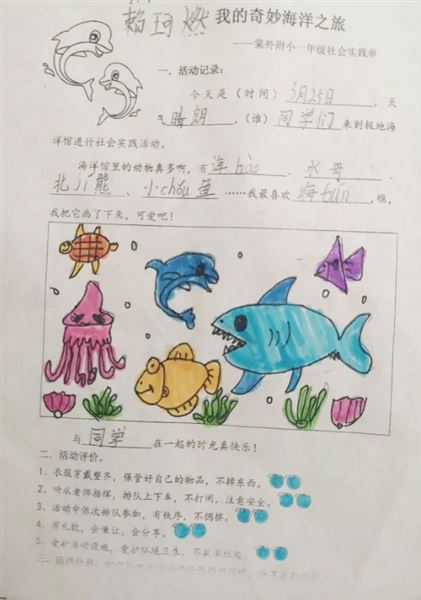 赖珂燃 我的奇妙海洋之旅
——棠外附小一年级社会实践单
一、活动记录：
今天是（时间）3月25日，天
气晴朗，（谁）同学们来到极地海
洋馆进行社会实践活动。
海洋馆里的动物真多啊，有海bào、水母、
北川熊、小chóu鱼……我最喜欢海tún，瞧，
我把它画了下来，可爱吧！
与同学在一起的时光真快乐！
二、活动评价。
1、衣服穿戴整齐，保管好自己的物品，不掉东西。
2、听从老师指挥，排队上下车，不打闹，注意安全。
3、活动中依次排队参加，有秩序，不拥挤。
4、有礼貌，会谦让，会分享。
5、爱护活动设施，爱护环境卫生，不乱丢垃圾。